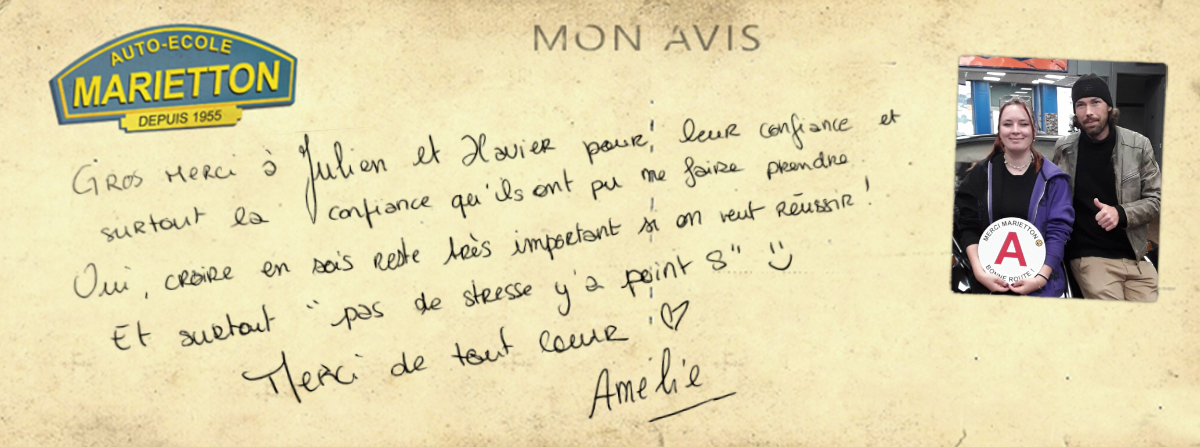 MON AVIS
AUTO-ECOLE
MARIETTON
DEPUIS 1955
Gros merci à Julien et Xavier pour leur confiance et
surtout la confiance qu'ils ont pu me faire prendre
Oui, croire en sois reste très important si on veut réussir !
Et surtout "pas de stresse y'a point S" :)
Merci de tout coeur ♡
Amelie
MERCI MARIETTON
A
BONNE ROUTE !